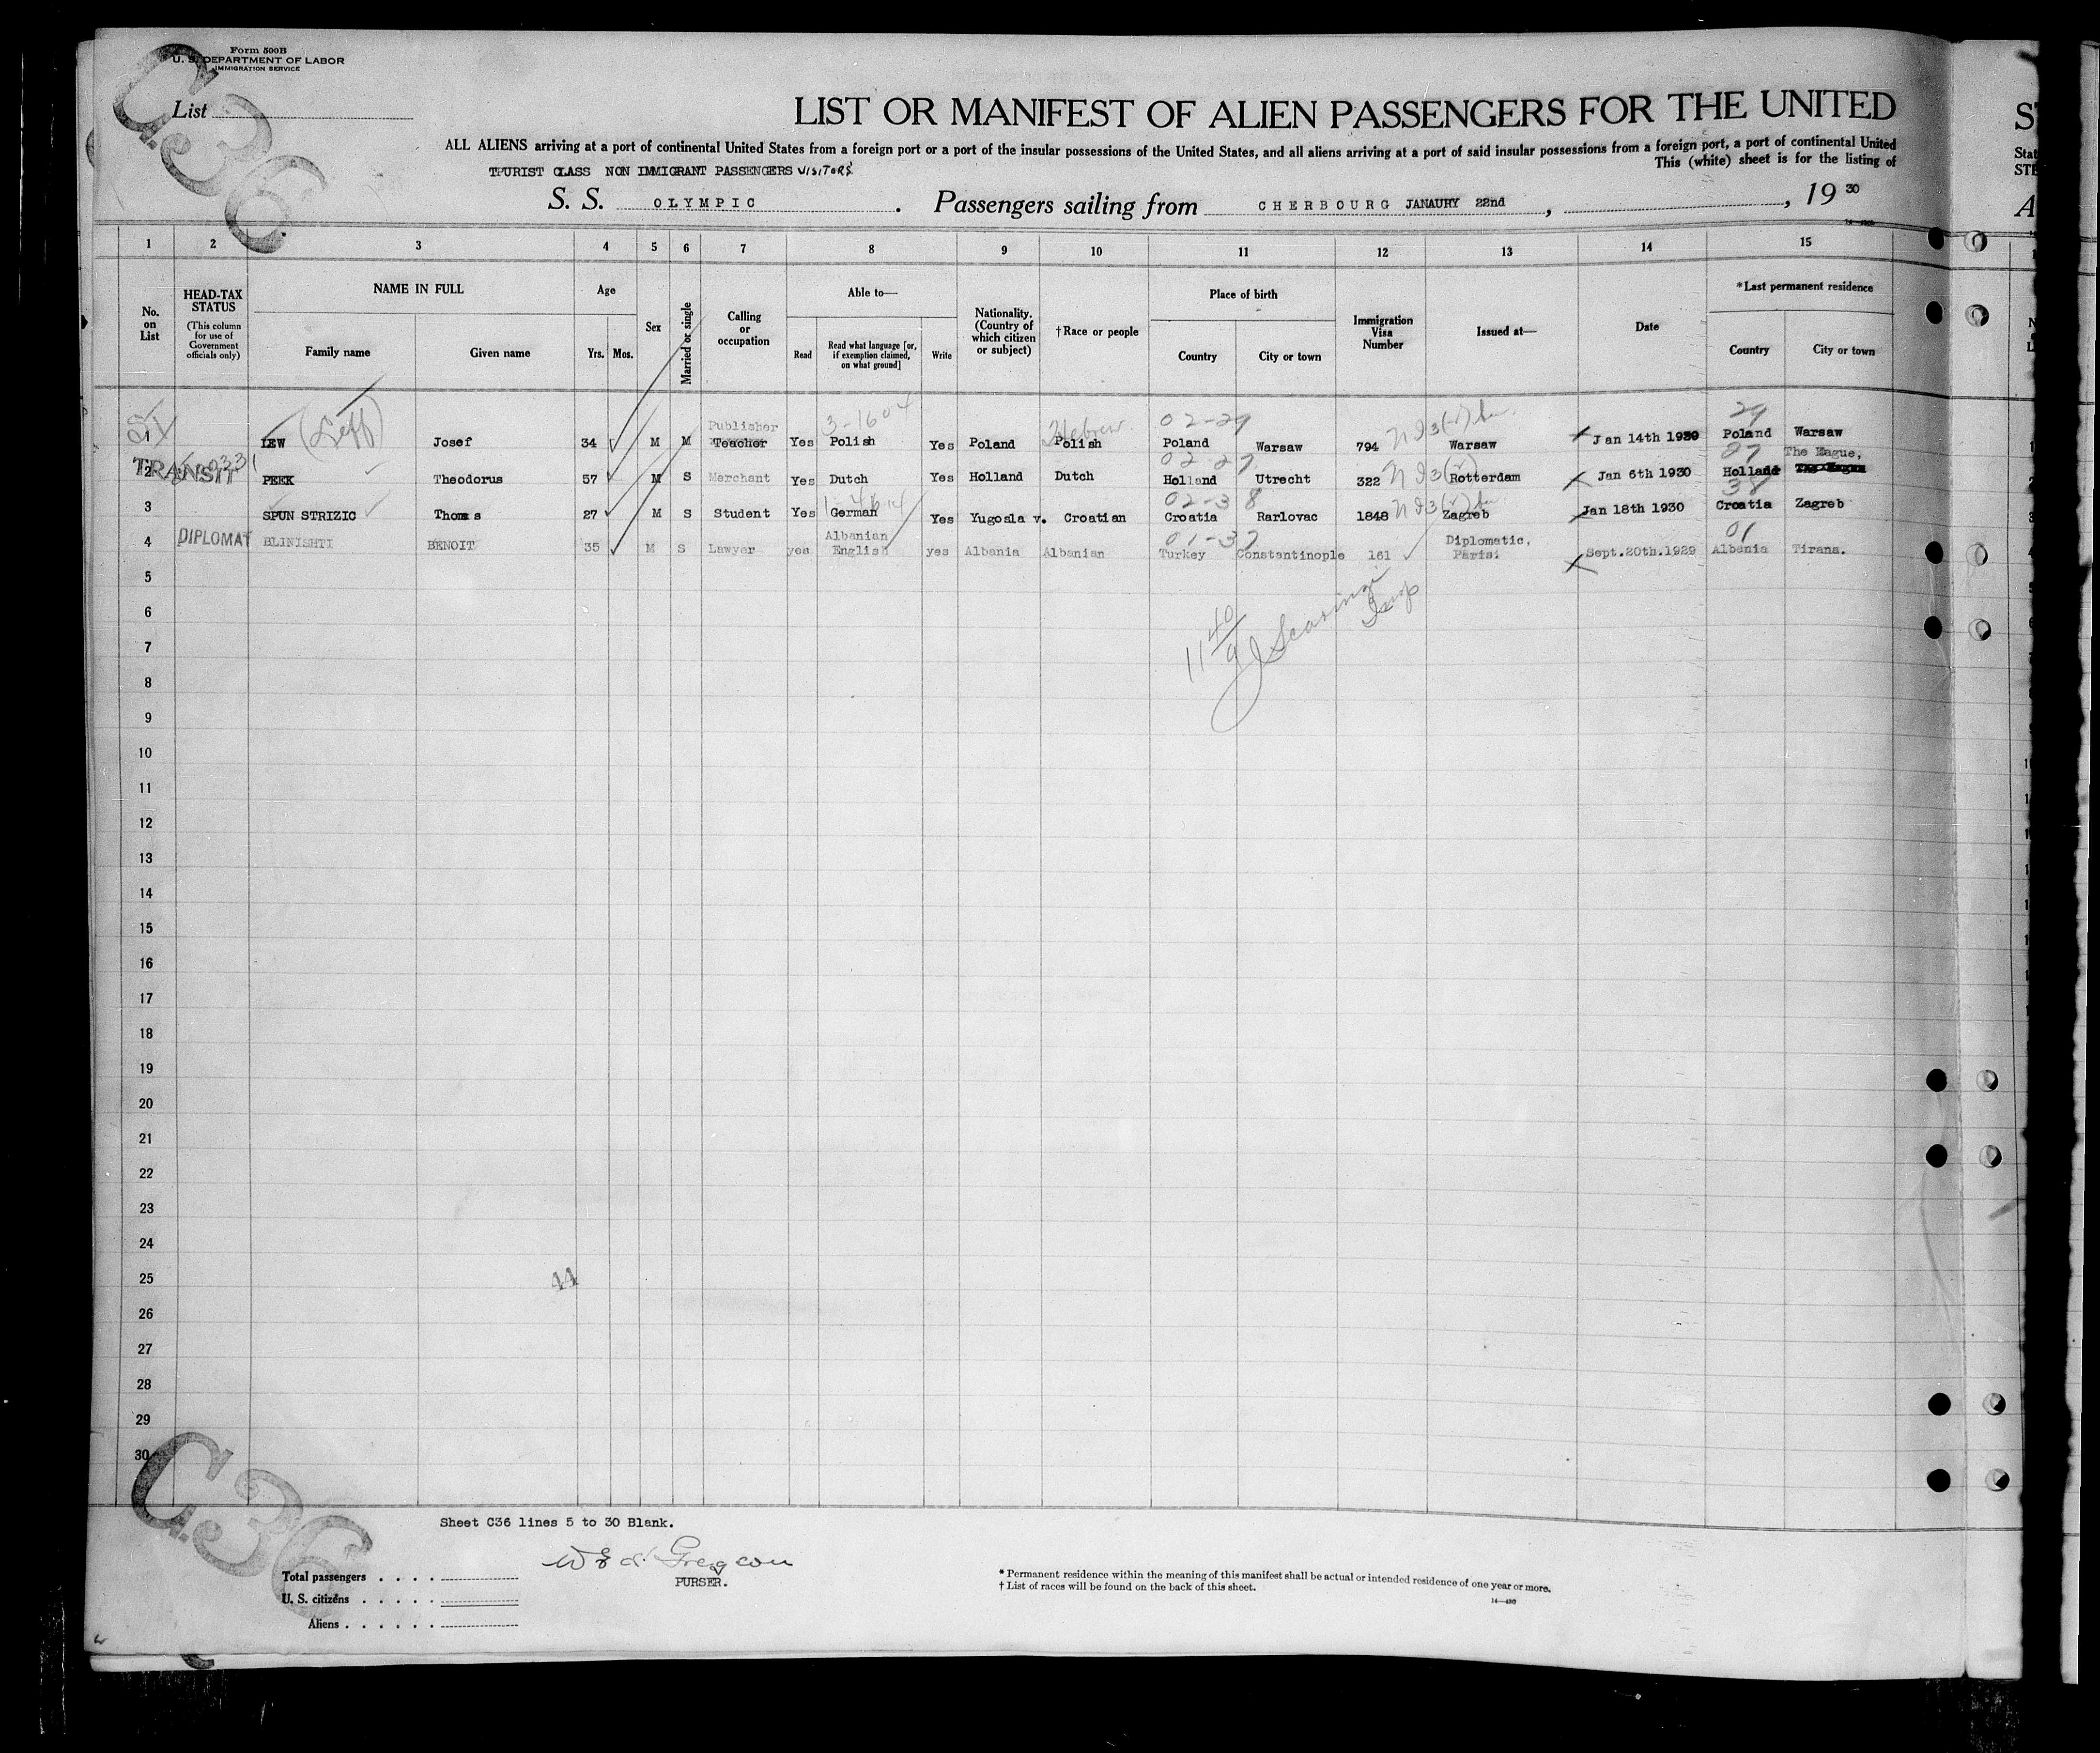 Form 500B
U. S. DEPARTMENT OF LABOR
IMMIGRATION SERVICE
C.36.
List
LIST OR MANIFEST OF ALIEN PASSENGERS FOR THE UNITED
ALL ALIENS arriving at a port of continental United States from a foreign port or a port of the insular possessions of the United States, and all aliens arriving at a port of said insular possessions from a foreign port, a port of continental United
This (white) sheet is for the listing of
TOURIST CLASS NON IMMIGRANT PASSENGERS VISITORS
S. S. OLYMPIC. Passengers sailing from CHERBOURG JANAURY 22nd, , 19 30
1 2 3 4 5 6 7 8 9 10 11 12 13 14 15
No. on List
HEAD-TAX STATUS
(This column for use of Government officials only)
NAME IN FULL
Family name Given name
Age
Yrs. Mos.
Sex
Married or single
Calling or occupation
Able to—
Read Read what language [or, if exemption claimed, on what ground] Write
Nationality. (Country of which citizen or subject)
†Race or people
Place of birth
Country City or town
Immigration Visa Number
Issued at—
Date
*Last permanent residence
Country City or town
Publisher 3-1604 Hebrew 02-29 29
1 LEW (Leff) Josef 34 M M Teacher Yes Polish Yes Poland Polish Poland Warsaw 794 Warsaw Jan 14th 1930 Poland Warsaw
02-27 27 The Hague,
TRANSIT 2 PEEK Theodorus 57 M S Merchant Yes Dutch Yes Holland Dutch Holland Utrecht 322 Rotterdam Jan 6th 1930 Holland
02-38 38
3 SPUN STRIZIC Thomas 27 M S Student Yes German Yes Yugosla v. Croatian Croatia Rarlovac 1848 Zagreb Jan 18th 1930 Croatia Zagreb
Albanian 01-37 Diplomatic, 01
4 DIPLOMAT BLINISHTI BENOIT 35 M S Lawyer yes English yes Albania Albanian Turkey Constantinople 161 Paris. Sept.20th.1929 Albania Tirana.
5
6
7
8
9
10
11
12
13
14
15
16
17
18
19
20
21
22
23
24
25
44
26
27
28
29
30
C.36
Sheet C36 lines 5 to 30 Blank.
PURSER.
Total passengers . . . .
U. S. citizens . . . . .
Aliens . . . . . .
* Permanent residence within the meaning of this manifest shall be actual or intended residence of one year or more.
† List of races will be found on the back of this sheet.
14—430